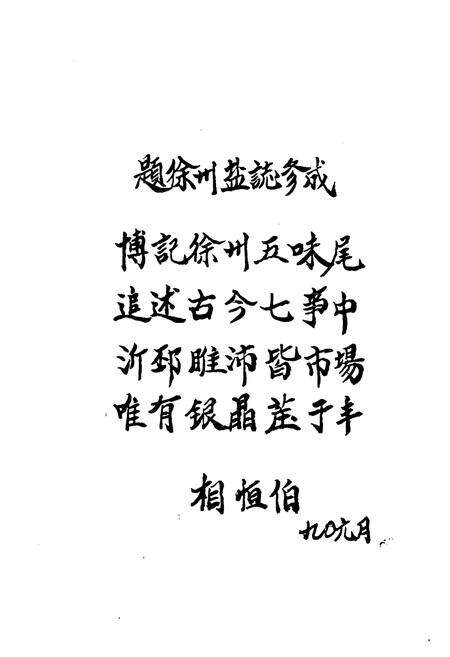 題徐州盐誌参成
博記徐州五味尾
追述古今七事中
沂邳睢沛皆市場
唯有银晶茁于丰
相恒伯
九〇六月